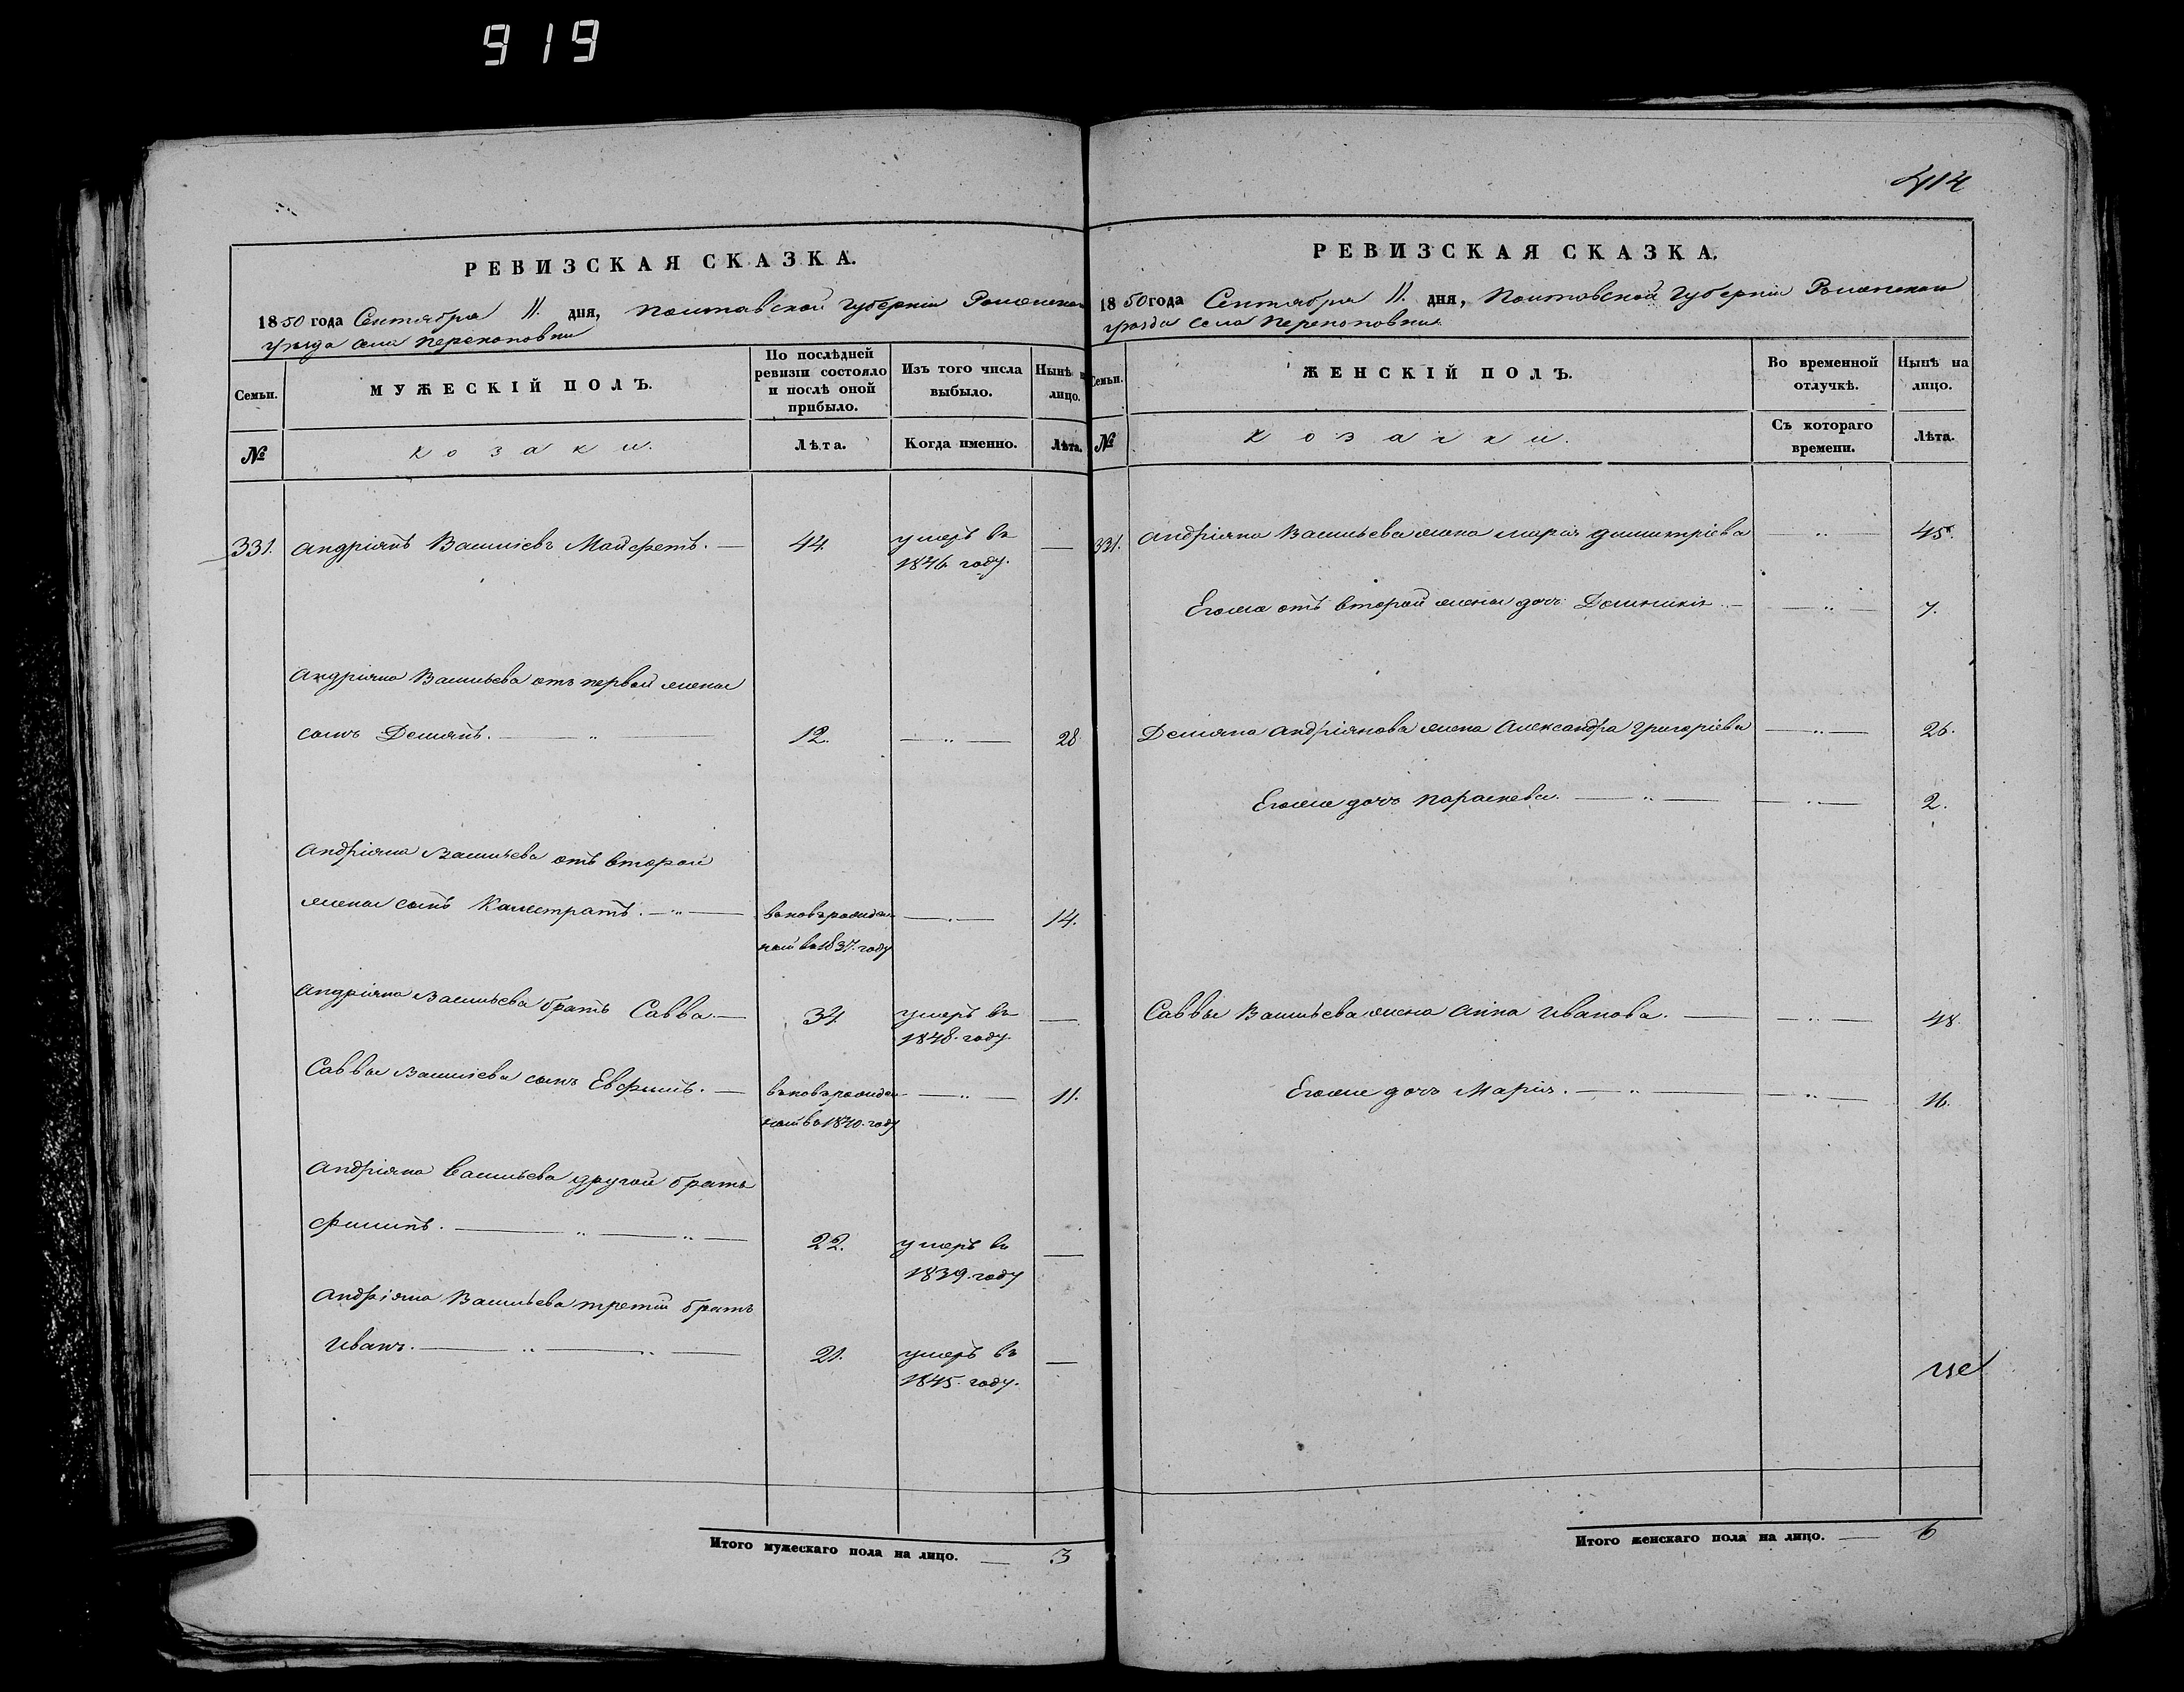 919
414
РЕВИЗСКАЯ СКАЗКА.
1850 года Сентября 11. дня, Полтавской Губернии Роменскаго
уѣзда села Перекоповки
Семьи. МУЖЕСКІЙ ПОЛЪ. По послѣдней ревизіи состояло и послѣ оной прибыло. Изъ того числа выбыло. Нынѣ на лицо.
№ козаки. Лѣта. Когда именно. Лѣта.
331. Андріянъ Васильевъ Майфетъ. — 44. умеръ въ —
1846. году.
Андріяна Васильева отъ первой жены
сынъ Демянъ. — „ — 12. — „ — 28
Андріяна Васильева отъ второй
жены сынъ Калистратъ. — „ — вновьрожден- — „ — 14.
ный въ 1837. году
Андріяна Васильева братъ Савва. — 34. умеръ въ —
1848. году.
Саввы Васильева сынъ Евфимъ. — вновьрожден- — „ — 11.
ный въ 1840. году
Андріяна Васильева другой братъ
Филипъ. — „ — „ — 22. умеръ въ —
1839. году
Андріяна Васильева третій братъ
Иванъ. — „ — „ — 21. умеръ въ —
1845. году.
Итого мужескаго пола на лицо. — 3
РЕВИЗСКАЯ СКАЗКА.
1850 года Сентября 11. дня, Полтавской Губерніи Роменскаго
уѣзда села Перекоповки.
Семьи. ЖЕНСКІЙ ПОЛЪ. Во временной отлучкѣ. Нынѣ на лицо.
№ козачки. Съ котораго времени. Лѣта.
331. Андріяна Васильева жена Марія Димитріева — „ — 45.
Егоже отъ второй жены дочь Домникія — — „ — 7.
Деміяна Андріянова жена Александра Григоріева — „ — 26.
Егоже дочь Параскева. — „ — — „ — 2.
Саввы Васильева жена Анна Иванова. — — „ — 48.
Егоже дочь Марія. — „ — — „ — 16.
Итого женскаго пола на лицо. — 6